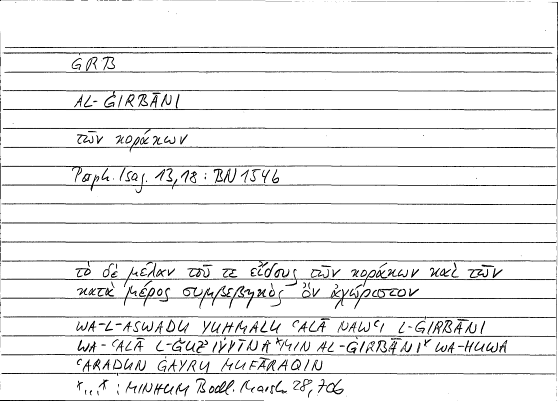 ĠRB
AL-ĠIRBĀNI
τῶν κοράκων
Porph. Isag. 13,18 : BN 154b
τὸ δὲ μέλαν τοῦ τε εἴδους τῶν κοράκων καὶ τῶν
κατὰ μέρος συμβεβηκὸς ὂν ἀχώριστον
WA-L-ASWADU YUHMALU ʿALĀ NAWʿI L-ĠIRBĀNI
WA-ʿALĀ L-ĠUZʾIYYĪNA *MIN AL-ĠIRBĀNI* WA-HUWA
ʿARADUN ĠAYRU MUFĀRAQIN
*...* : MINHUM Bodl. Marsh 28,